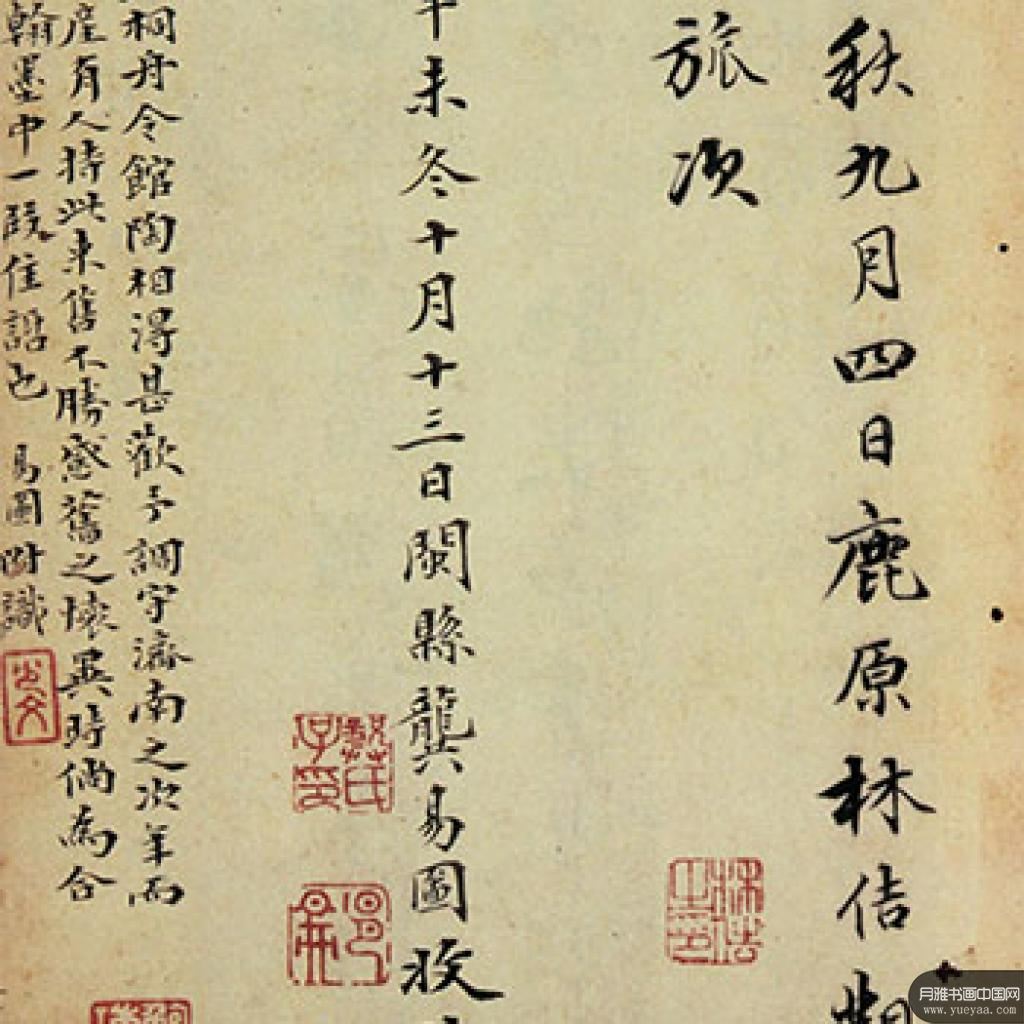 秋九月四日鹿原林佶
旅次
未冬十月十三日閩縣龔易圖
桐舟令館陶相得甚歡予調守濟南之次年而
有人持此來售不勝感舊之懷異時倘為合
翰墨中一段佳話也 易圖附識
月雅书画中国网
www.yueyaa.com